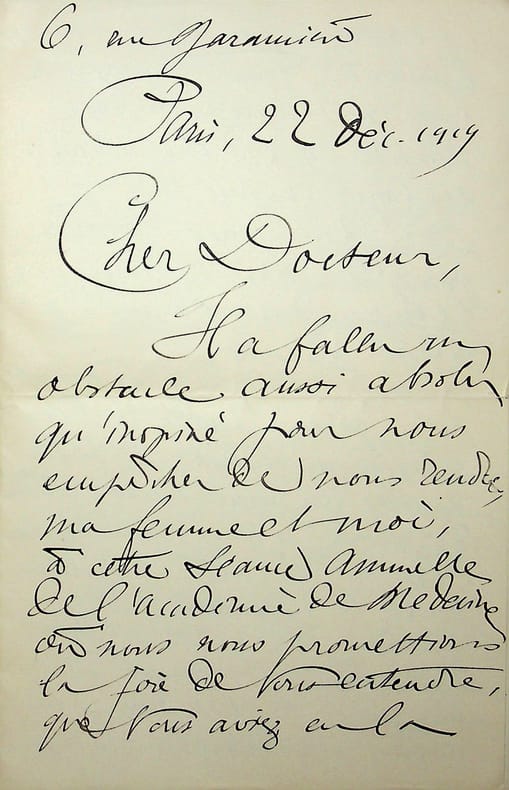 6, rue Garancière
Paris, 22 Déc. 1919
Cher Docteur,
Il a fallu un
obstacle aussi absolu
qu'inopiné pour nous
empêcher de nous rendre,
ma femme et moi,
à cette séance annuelle
de l'Académie de Médecine
où nous nous promettions
la joie de vous entendre,
que vous aviez eu la